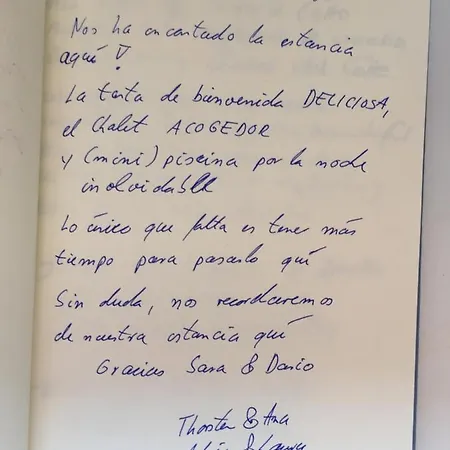 Nos ha encantado la estancia
aquí !
La tarta de bienvenida DELICIOSA,
el Chalet ACOGEDOR
y (mini) piscina por la noche
inolvidable
Lo único que falta es tener más
tiempo para pasarlo quí
Sin duda, nos recordaremos
de nuestra estancia quí
Gracias Sara & Dario
Thorsten & Ana